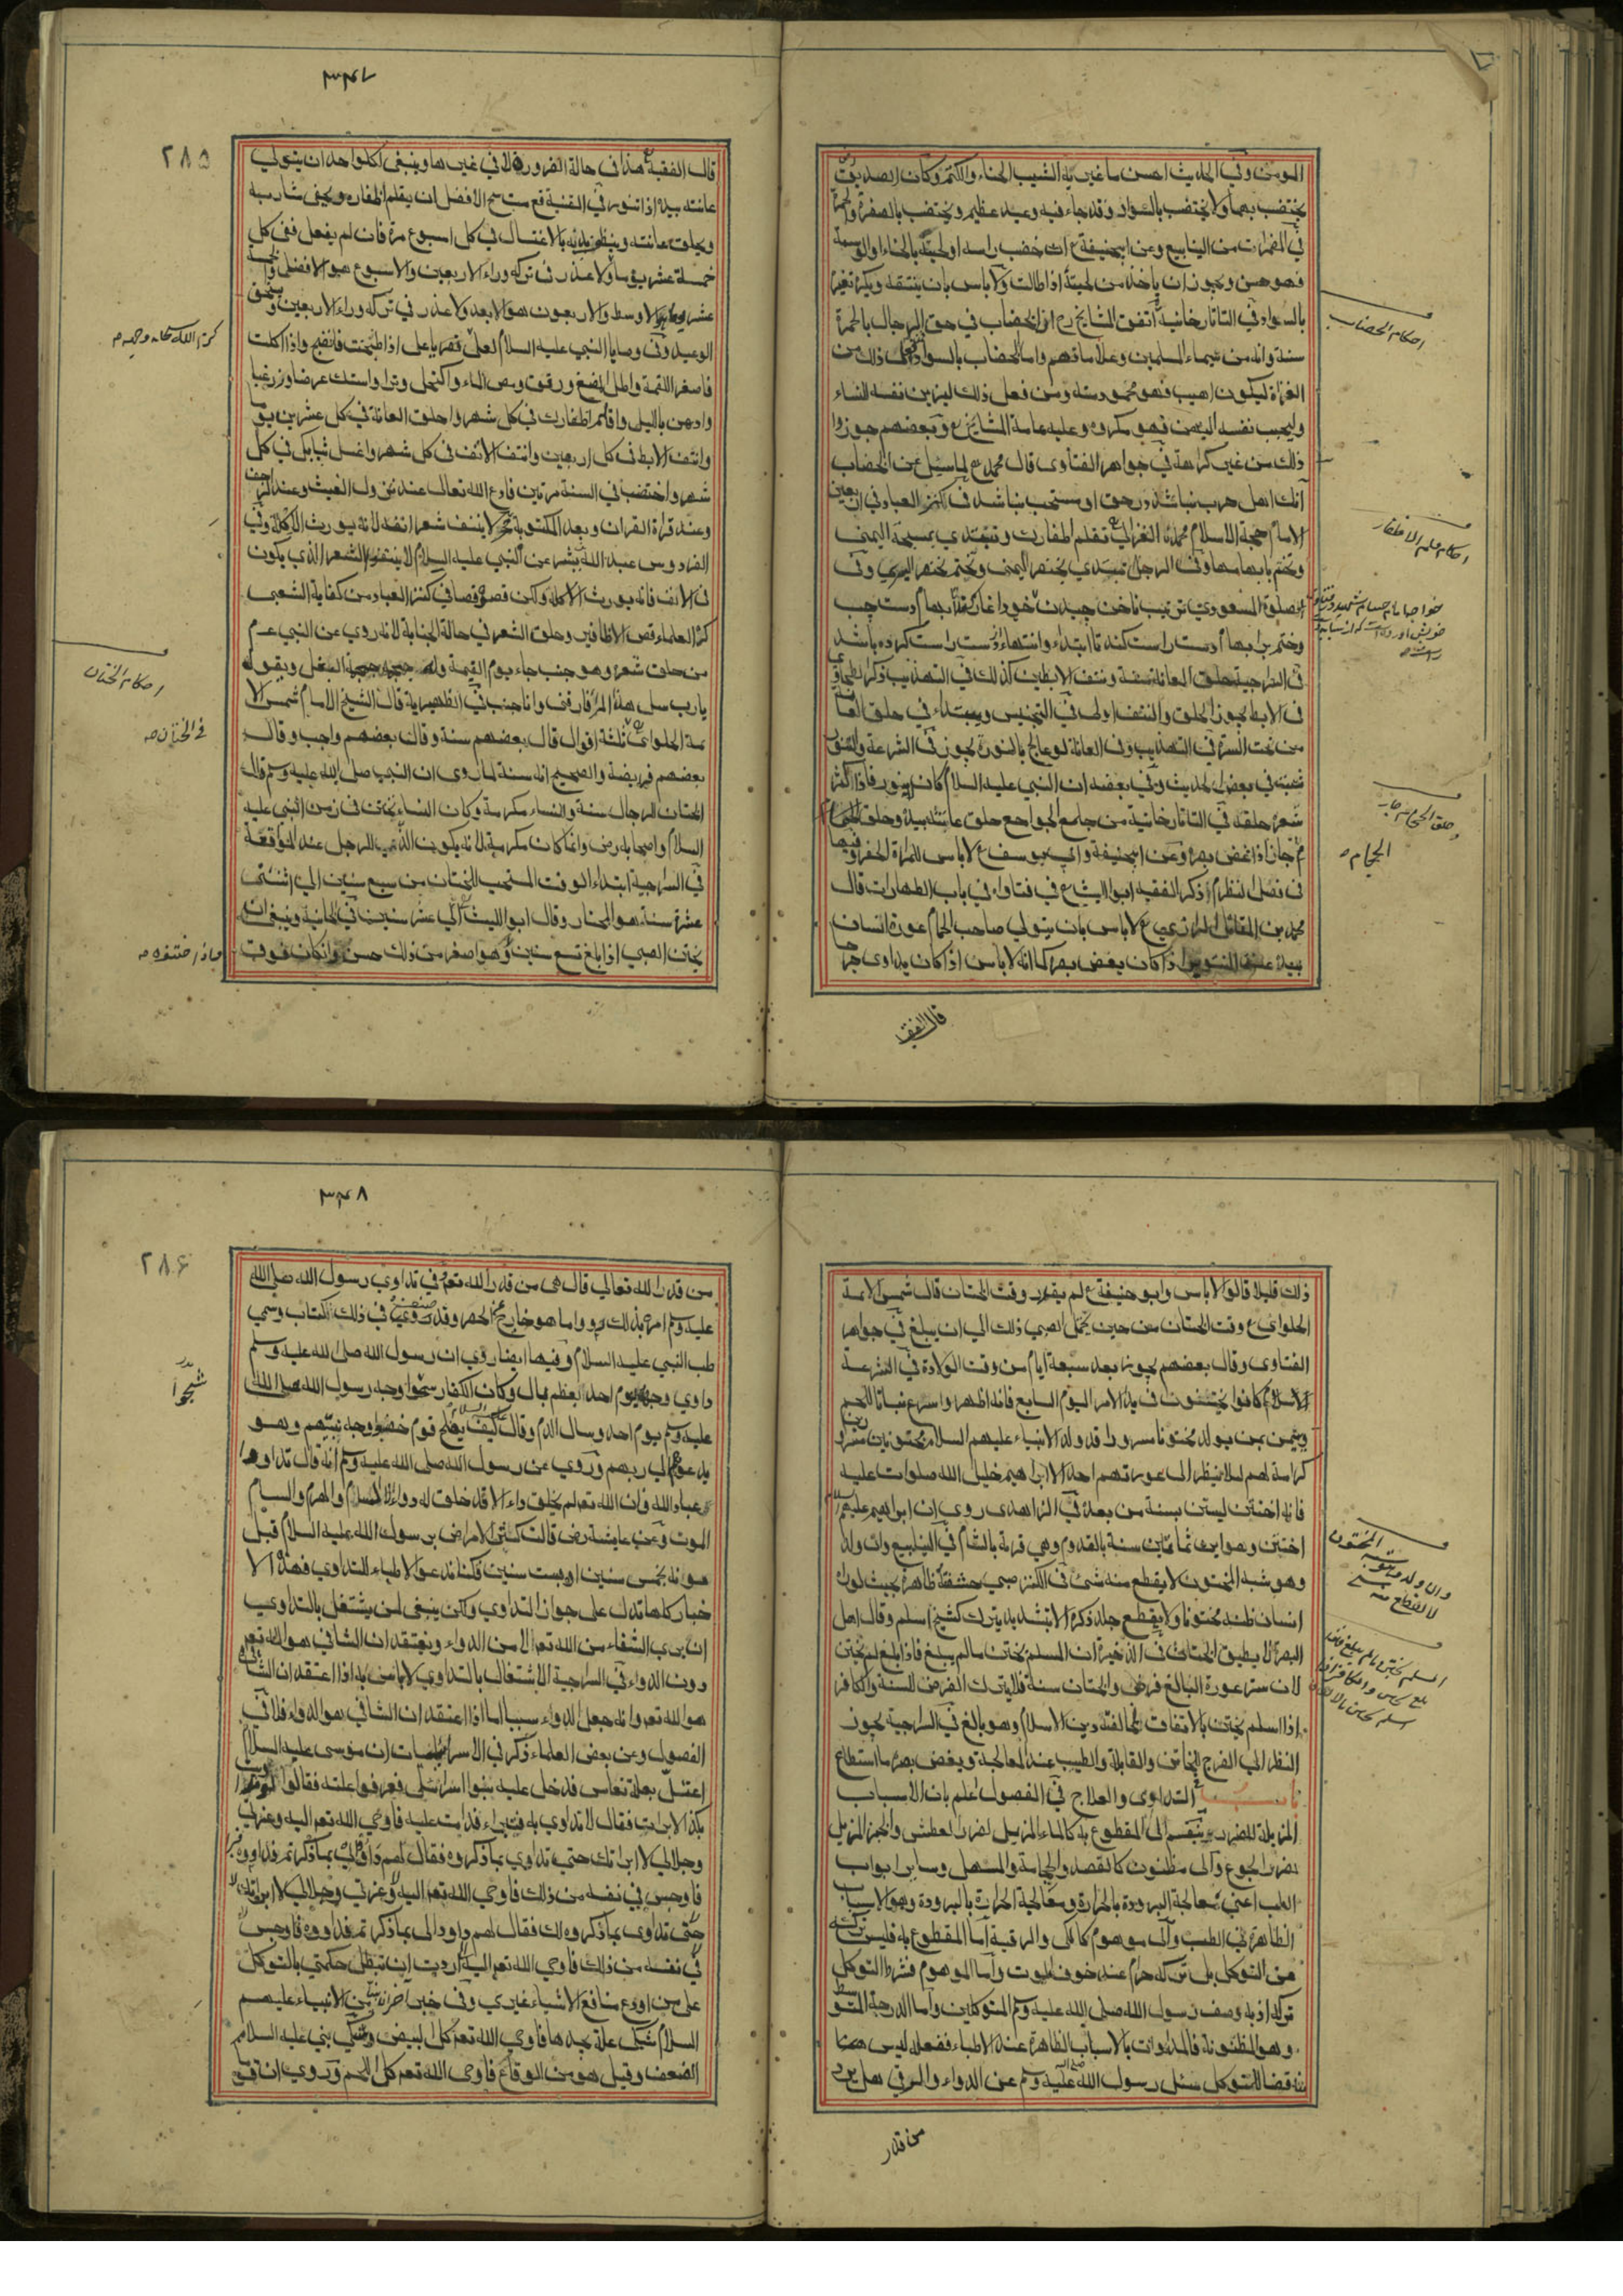 المومن وفي الحديث احسن ما غير به الشيب الحناء والكتم وكان الصديق
يختضب بهما ولا يختضب بالسواد وقد جاء فيه وعيد عظيم ويختضب بالصفرة والحمرة
في المضمرات من الينابيع وعن ابيحنيفة ع ان خضب راسه او لحيته بالحناء او الوسمة
فهو حسن ويجوز ان ياخذ من لحيته اذا طالت ولا باس بان ينتقه ويكره تغيره
بالسواد في التاتارخانية اتفق المشايخ رح ان الخضاب في حق الرجال بالحمرة
سنة وانه من سيماء المسلمين وعلاماتهم واما الخضاب بالسواد فمن فعل ذلك من
الغزاة ليكون اهيب فهو محمود منه ومن فعل ذلك ليزين نفسه للنساء
وليحبب نفسه اليهن فهو مكروه وعليه عامة المشايخ ع وبعضهم جوزوا
ذلك من غير كراهة في جواهر الفتاوى قال محمد ع لما سئل عن الخضاب
الامام حجة الاسلام محمد الغزالي تقلم اظفارك وتبتدي بمسبحة اليمنى
وتختم بابهامها وفي الرجل تبتدي بخنصر اليمنى وتختم بخنصر اليسرى وفي
وختم بر ابهام دست راست كند تا ابتداء وانتهاء از دست راست كرده باشد
في السراجية حلق العانة سنة ونتف الابطين كذلك في التهذيب ذكر الطحاوي
في الابط يجوز الحلق والنتف اولى في التجنيس ويبتداء في حلق العانة
من تحت السرة في التهذيب وفي العانة لو عالج بالنورة يجوز في الشرعة والتنور
شعبة في بعض الحديث وفي بعضه ان النبي عليه السلام كان لا يتنور فاذا كثر
شعره حلقه في التاتارخانية من جامع الجوامع حلق عانته بيده وحلق الحجام
جاز اذا غض بصره وعن ابيحنيفة وابي يوسف ع لاباس للمراة
في فصل النظر ذكر الفقيه ابو الليث ع في فتاواه في باب الطهارات قال
محمد بن المقاتل الرازي ع لاباس بان يتولى صاحب الحمام عورة انسان
بيده عند التنوير اذا كان يغض بصره كما انه لاباس اذا كان يداوى جر
قال الفقيه
احكام الخضاب
احكام قلم الاظفار
وحلق الحجام جاز
الحجام
٣٤٧
٢٨٥
قال الفقيه ع هذا في حالة الضرورة لا في غيرها وينبغي لكل واحد ان يتولى
عانته بيده اذا تنور في القنية قع الافضل ان يقلم اظفاره ويحفي شاربه
ويحلق عانته وينظف بدنه بالاغتسال في كل اسبوع مرة فان لم يفعل ففي كل
خمسة عشر يوما ولا عذر في تركه وراء الاربعين والاسبوع هو الافضل والخمسة
عشر هو الاوسط والاربعون هو الابعد ولا عذر في تركه وراء الاربعين ويستحق
الوعيد وفي وصايا النبي عليه السلام لعلي يا علي اذا طبخت فانضج واذا اكلت
فاصغر اللقمة واطل المضغ ومص الماء واكتحل وترا واستك عرضا وزر غبا
وادهن بالليل واقلم اظفارك في كل شهر واحلق العانة في كل عشرين يوما
وانتف الابط في كل اربعين وانتف الانف في كل شهر واغسل ثيابك في كل
شهر واختضب في السنة مرتين وادع الله تعالى عند نزول الغيث وعند
وعند قراة القران وبعد المكتوبة لا ينتف شعر انفه لانه يورث الاكلة وفي
الفردوس عبد الله بن بشر عن النبي عليه السلام لا ينتفوا الشعر الذي يكون
في الانف فانه يورث الاكلة ولكن قصوه قصا في كنز العباد من كفاية الشعبي
كره العلماء قص الاظافير وحلق الشعر في حالة الجنابة لانه روي عن النبي عم
من حلق شعره وهو جنب جاء يوم القيمة ويقول
يارب سل هذا لم فارقني وانا جنب في الظهيرية قال الشيخ الامام شمس الا
ئمة الحلوائي ثلثة اقوال قال بعضهم سنة وقال بعضهم واجب وقال
بعضهم فريضة والصحيح انه سنة لما روى ان النبي صلى الله عليه وسلم قال
الختان للرجال سنة وللنساء مكرمة وكان النساء تختتن في زمن النبي عليه
السلام واصحابه رض وانما كان مكرمة لانه يكون الذ للرجل عند المواقعة
في السراجية ابتداء الوقت المستحب للختان من سبع سنين الى اثنتي
عشرة سنة هو المختار وقال ابو الليث الى عشر سنين في الخانية وينبغي ان
يختن الصبي اذا بلغ تسع سنين وهو اصغر من ذلك حسن وان كان فوق
احكام الختان
في الختان
٣٤٨
٢٨٦
ذلك قليلا قالوا لاباس وابو حنيفة ع لم يقدر وقت الختان قال شمس الائمة
الحلوائي ع وقت الختان من حين يحتمل الصبي ذلك الى ان يبلغ في جواهر
الفتاوى وقال بعضهم يجوز بعد سبعة ايام من وقت الولادة في الشرعة
الاسلام كانوا يختنون في بدء الامر اليوم السابع فانه اطهر واسرع نباتا للحم
ويتيمن بمن يولد مختونا مسرورا قد ولد الانبياء عليهم السلام مختونين مسرورين
كرامة لهم لئلا ينظر الى عورتهم احد الا ابراهيم خليل الله صلوات عليه
فانه اختتن ليستن بسنته من بعده في الزاهدى روي ان ابراهيم عليه السلام
اختتن وهو ابن ثمانين سنة بالقدوم وهي قرية بالشام في الينابيع وان ولد
وهو شبه المختون لا يقطع منه شئ في الكنز صبي حشفته ظاهرة بحيث لو راه
انسان ظنه مختونا ولا يقطع جلد ذكره الا بتشديد يترك كشيخ اسلم وقال اهل
البصر لا يطيق الختان في الذخيرة ان المسلم يختن مالم يبلغ فاذا بلغ لم يختن
لان ستر عورة البالغ فرض والختان سنة فلا يترك الفرض للسنة والكافر
اذا اسلم يختن بالاتفاق لمخالفته دين الاسلام وهو بالغ في السراجية يجوز
النظر الى الفرج للخاتن والقابلة والطبيب عند المعالجة ويغض بصره ما استطاع
التداوى والعلاج في الفصول اعلم بان الاسباب
المزيلة للضرر ينقسم الى المقطوع به كالماء المزيل لضرر العطش والخبز المزيل
لضرر الجوع والى مظنون كالفصد والحجامة والمسهل وسائر ابواب
الطب اعني معالجة البرودة بالحرارة ومعالجة الحرارة بالبرودة وهو الاسباب
الظاهرة في الطب والى موهوم كالكي والرقية اما المقطوع به فليس تركه
من التوكل بل تركه حرام عند خوف الموت واما الموهوم فشرط التوكل
تركه اذ به وصف رسول الله صلى الله عليه وسلم المتوكلين واما الدرجة المتوسطة
وهو المظنونة فالمداوات بالاسباب الظاهرة عند الاطباء ففعله ليس
مناقضا للتوكل سئل رسول الله صلى الله عليه وسلم عن الدواء والرقي هل يرد
من قدر
من قدر الله تعالى قال هي من قدر الله تعم في تداوى رسول الله صلى الله
عليه وسلم امره بذلك واما هو خارج عن الحصر وقد صنف في ذلك كتاب وسمي
طب النبي عليه السلام وفيها ايضا روي ان رسول الله صلى الله عليه وسلم
داوى وجهه يوم احد بعظم بال وكان الكفار شجوا وجه رسول الله صلى الله
عليه وسلم يوم احد وسال الدم وقال كيف يفلح قوم خضبوا وجه نبيهم وهو
يدعوهم الى ربهم وروي عن رسول الله صلى الله عليه وسلم انه قال تداووا
عباد الله فان الله تعم لم يخلق داء الا قد خلق له دواء الا السام والهرم والسام
الموت وعن عايشة رض قالت كثر الامراض برسول الله عليه السلام قبل
موته بخمس سنين او بست سنين فكنا ندعو الاطباء للتداوي فهذه الا
خبار كلها تدل على جواز التداوي ولكن ينبغي لمن يشتغل بالتداوي
ان يرى الشفاء من الله تعم لا من الدواء ويعتقد ان الشافي هو الله تعم
دون الدواء في السراجية الاشتغال بالتداوي لاباس به اذا اعتقد ان الشافي
هو الله تعم وانه جعل الدواء سببا اما اذا اعتقد ان الشافي هو الدواء فلا في
الفصول وعن بعض العلماء ذكر في الاسرائيليات ان موسى عليه السلام
اعتل بعلة فدخل عليه بنوا اسرائيل فعرفوا علته فقالوا لو تداويت
بكذا لابرات فقال لا تداوي به فاوحى الله تعم اليه وعزتي
وجلالي لا ابراتك حتى تداوي بما ذكروه فقال لهم داووني بما ذكرتم فداووه فبرا
فاوجس في نفسه من ذلك فاوحى الله تعم اليه وعزتي وجلالي لا ابراتك
حتى تداوى بما ذكروه لك فقال لهم داووني بما ذكرتم فداووه فاوجس
في نفسه من ذلك فاوحى الله تعم اليه اردت ان تبطل حكمتي بالتوكل
على من اودع منافع الاشياء غيري وفي خبر اخر ان نبي من الانبياء عليهم
السلام شكى علة يجدها فاوحى الله تعم كل البيض وشكى نبي عليه السلام
الضعف وقيل هو من الوقاع فاوحى الله تعم كل اللحم وروي ان قوما